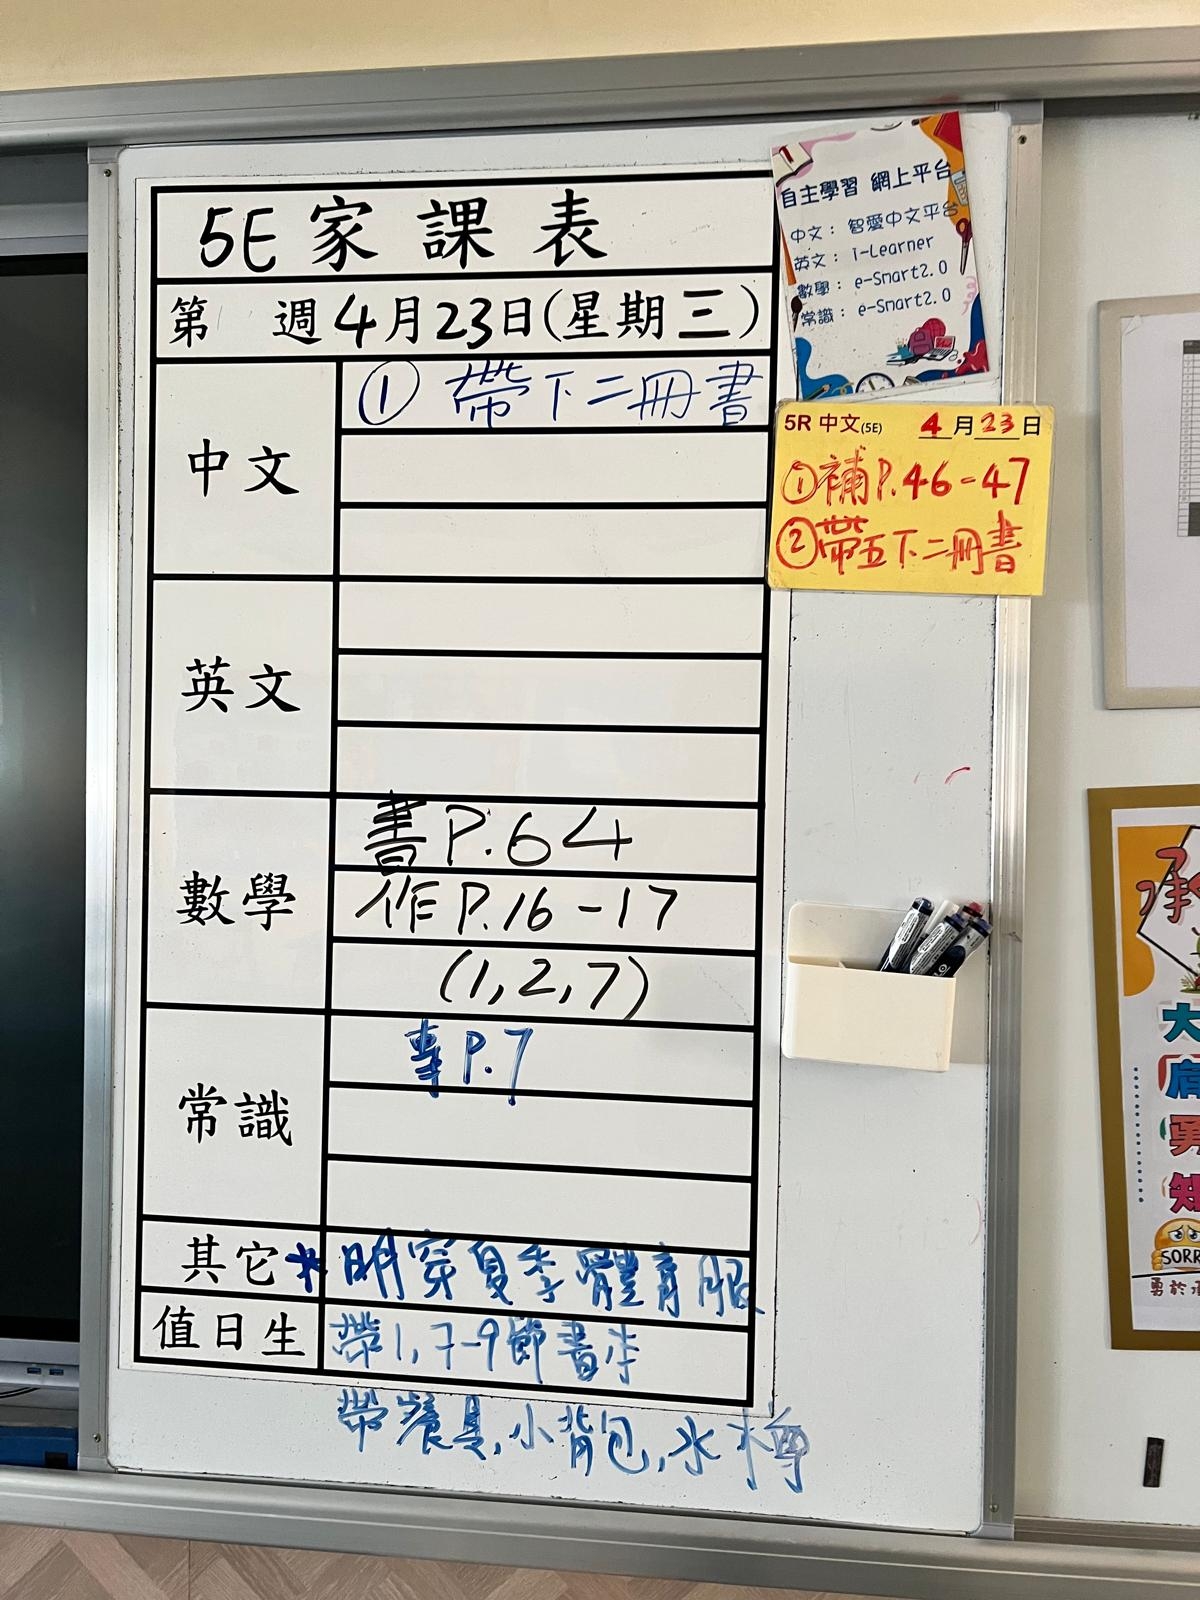 5E 家課表
第 週 4月23日(星期三)
中文
① 帶下二冊書
英文
數學
書 P.64
作 P.16-17
(1,2,7)
常識
書 P.7
其它
* 明穿夏季體育服
值日生
帶1,7-9節書本
帶餐具,小背包,水樽
1
自主學習 網上平台
中文: 智愛中文平台
英文: i-Learner
數學: e-Smart2.0
常識: e-Smart2.0
5R 中文(5E) 4月23日
①補P.46-47
②帶五下二冊書
承
大
勇
知
SORR
勇於承